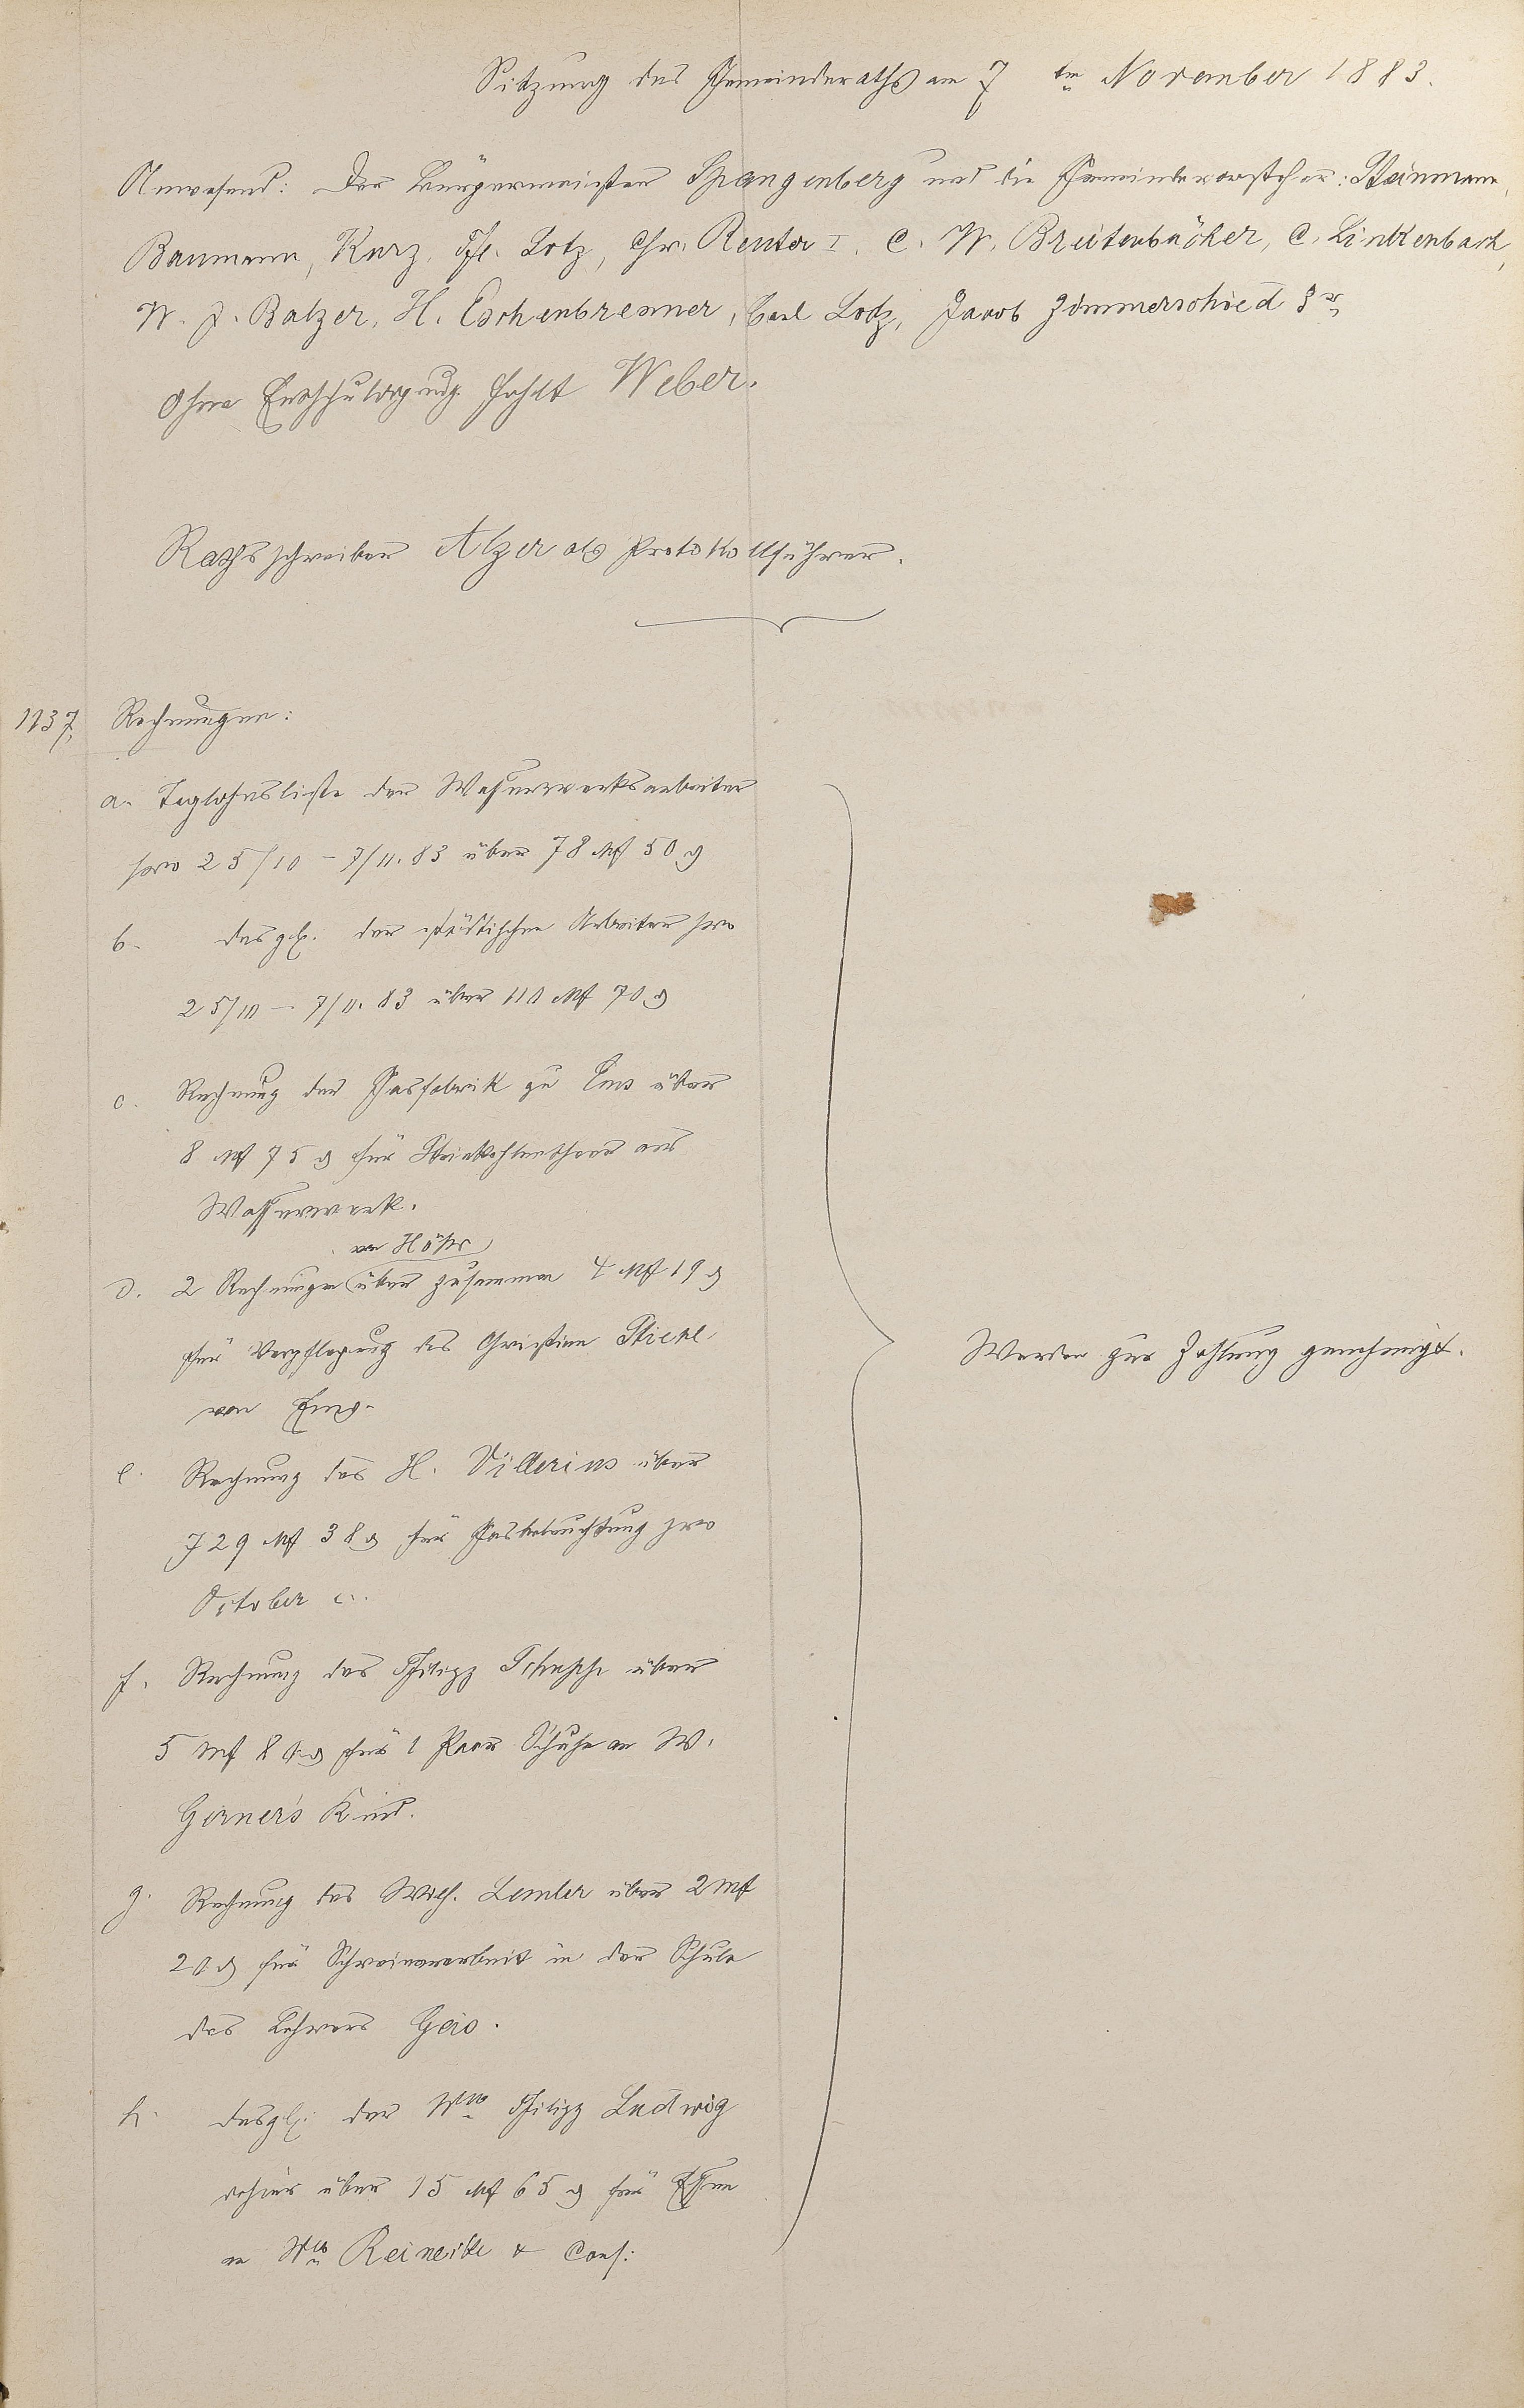 Sitzung des Gemeinderaths am 7 ten November 1883.
Anwesend: Der Bürgermeister Spangenberg und die Gemeindevorsteher: Steinmann,
Baumann, Kurz, Ph. Lotz, Chr. Reuter I. C. W. Breitenbücher, C. Linkenbach,
W. J. Balzer, H. Eschenbrenner, Carl Lotz, Jacob Zimmerschied 3r
ohne Entschuldigung fehlt Weber.
Rathsschreiber Alzer als Protokollführer.
1137. Rechnungen:
a. Taglohnsliste der Wasserwerksarbeiter
pro 25/10 - 7/11. 83 über 78 Mk 50 ₰
b. desgl. der städtischen Arbeiter pro
25/10 - 7/11. 83 über 110 Mk 70 ₰
c. Rechnung der Gasfabrik zu Ems über
8 Mk 75 ₰ für Steinkohlentheer ans
Wasserwerk.
von Höhr
d. 2 Rechnungen über zusammen 4 Mk 19 ₰
für Verpflegung des Christian Stiehl
von Ems.
e. Rechnung des H. Villerius über
729 Mk 38 ₰ für Gasbeleuchtung pro
October c.
f. Rechnung des Philipp über
5 Mk 80 ₰ für 1 Paar Schuhe an W.
Girner's Kind.
g. Rechnung des Wilh. Lemler über 2 Mk
20 ₰ für Schreinerarbeit in der Schule
des Lehrers Geis.
h. desgl. der Wwe Philipp Ludwig
dahier über 15 Mk 65 ₰ für Essen
an Wwe Reineck & Cons:
Werden zur Zahlung genehmigt.